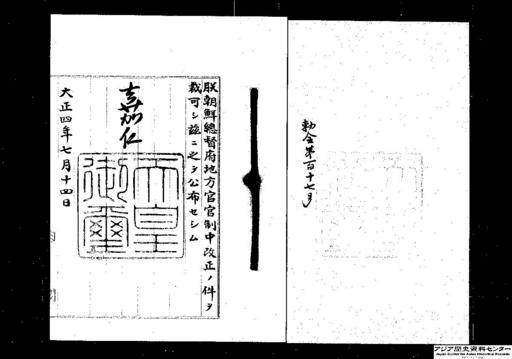 勅令第百十七号
朕朝鮮總督府地方官官制中改正ノ件ヲ
裁可シ茲ニ之ヲ公布セシム
嘉仁
天皇
御璽
大正四年七月十四日
アジア歴史資料センター
Japan Center for Asian Historical Records